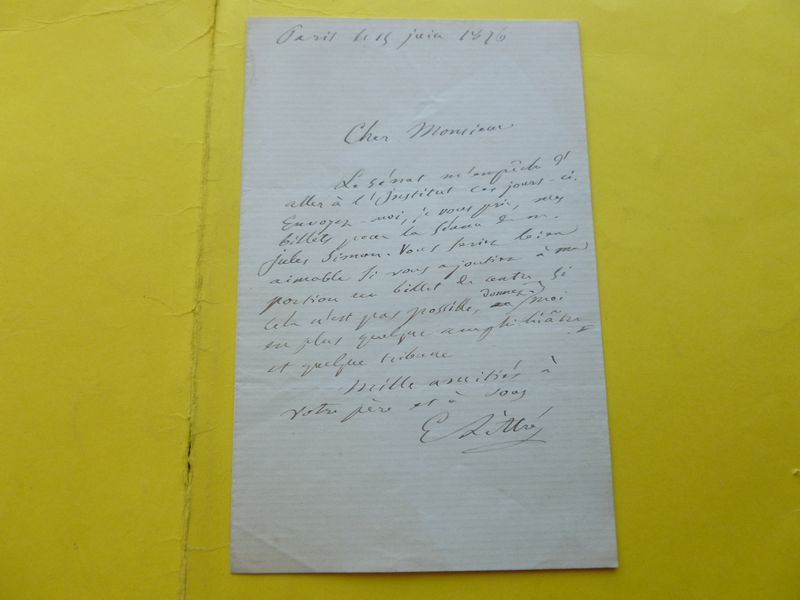 Paris le 15 juin 1876
Cher Monsieur
Le Sénat m'empêche d'
aller à l'Institut ces jours-ci.
Envoyez-moi, je vous prie, mes
billets pour la séance de m.
jules Simon. Vous seriez bien
aimable si vous ajoutiez à ma
portion un billet de centre. Si
cela n'est pas possible, donnez moi
en plus quelque amphithéâtre
et quelque tribune
Mille amitiés à
votre père et à vous
E Littré